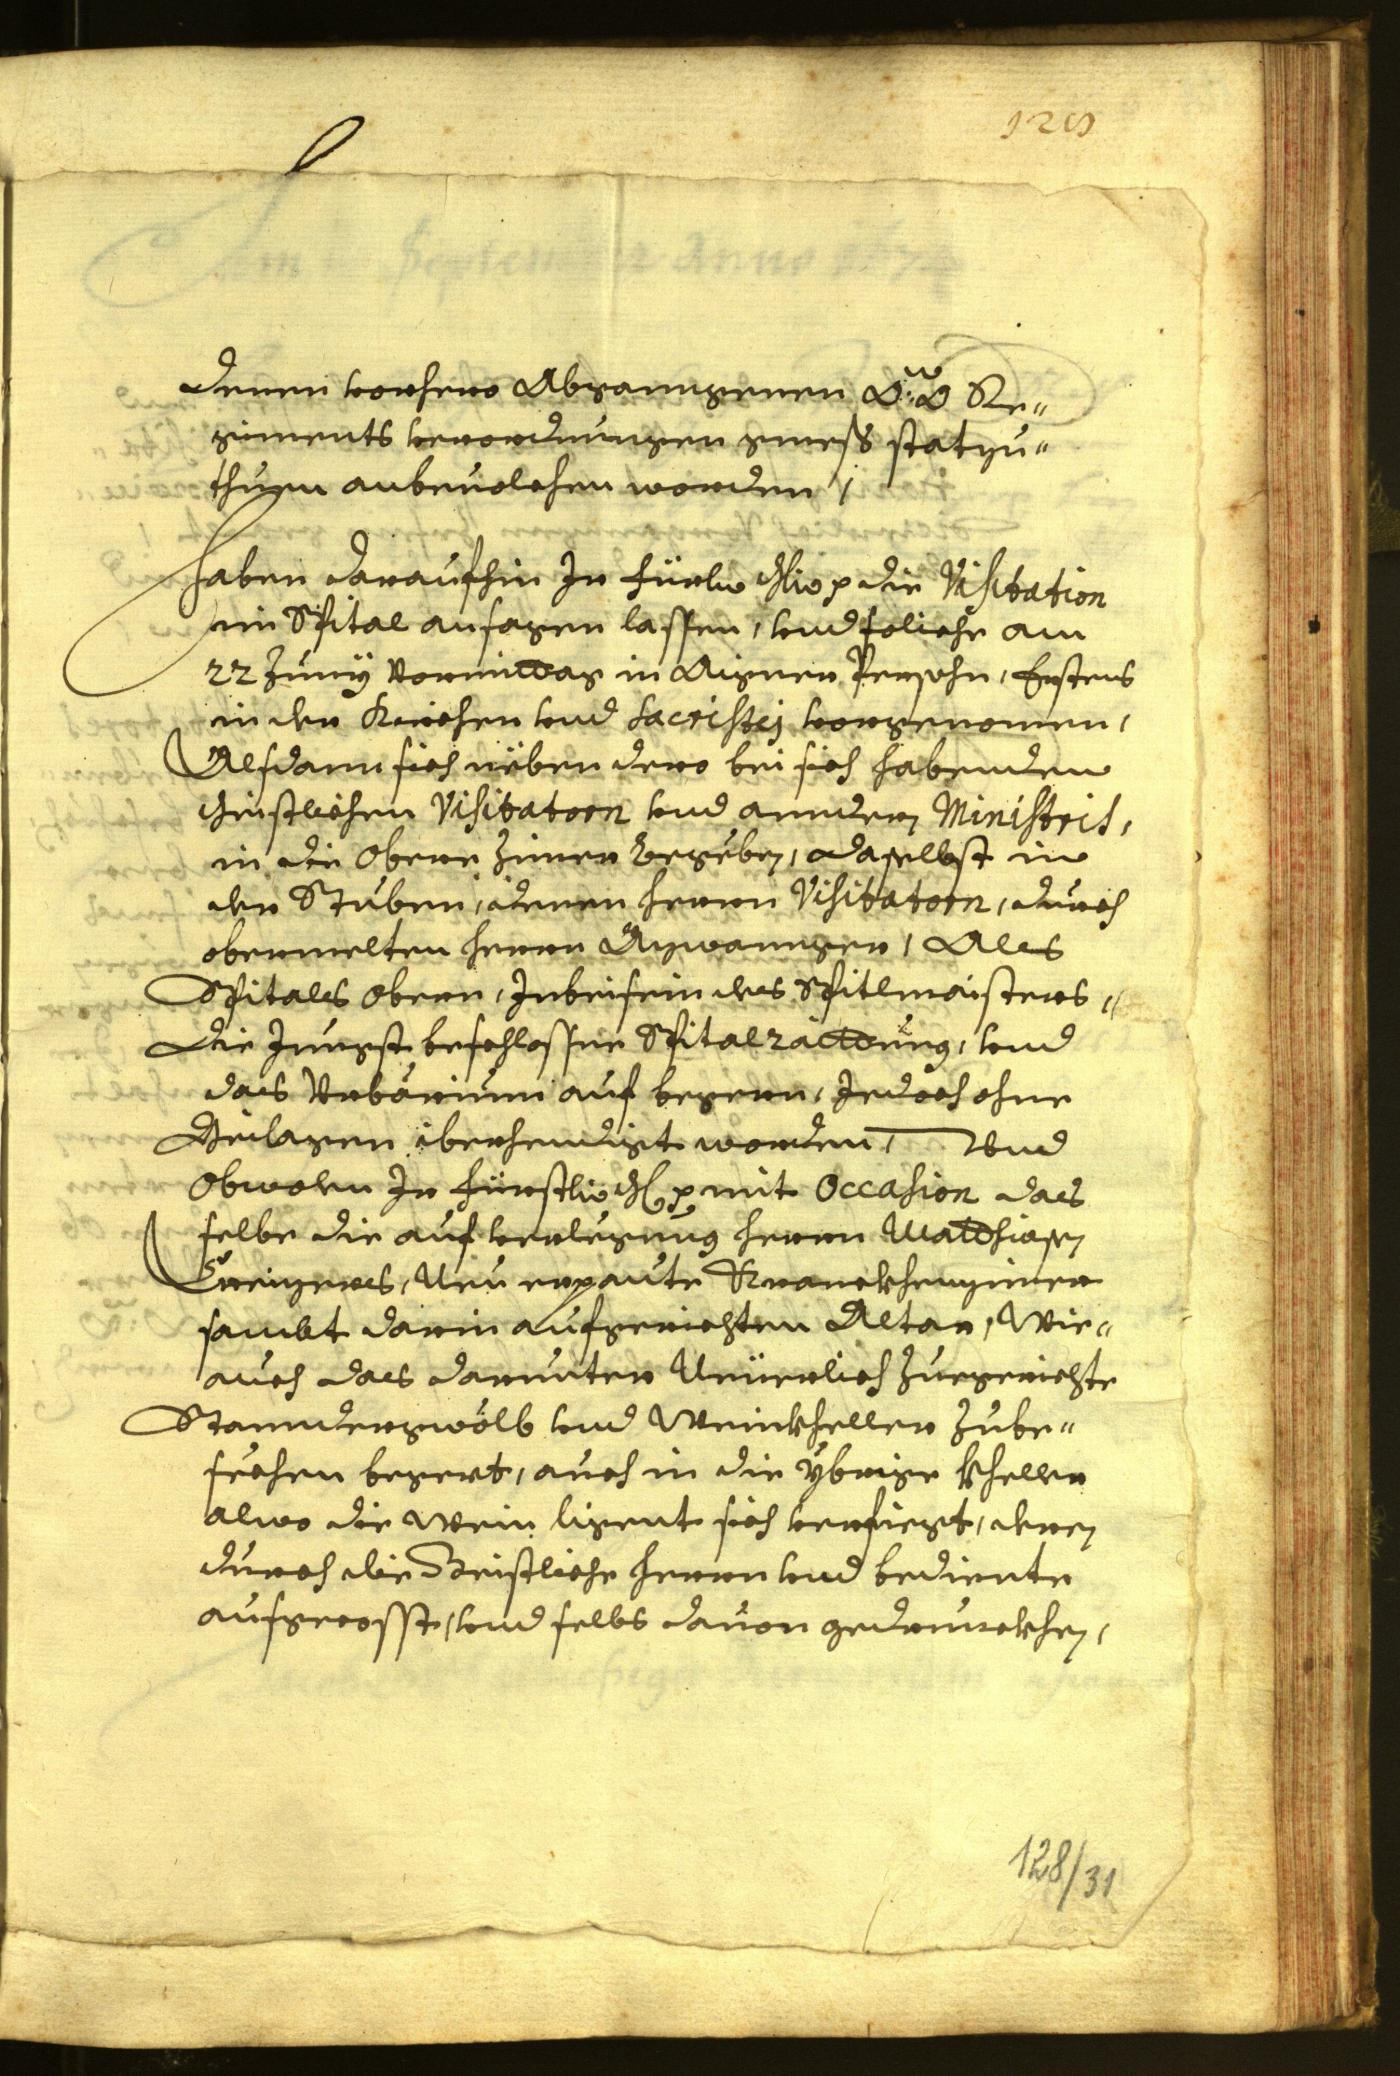 128
denen vorhero Abganngenen O:Ö Re„
giments verordnungen gmess statzu„
thuen anbeuolchen worden /
Haben daraufhin Ir fürstl: die Visitation
im Spital ansagen lassen, vnd soliche am
22 Junÿ Vormittag in Aigner Persohn, Erstens
in der Kirchen vnd Sacristej vorgenomen,
Alsdann sich nëben dero bei sich habenden
Geistlichen Visitatorn vnd anndern Ministris,
in die Obere Zimer begëben, daselbst in
der Stuben, denen herrn Visitatorn, durch
obermelten herrn Aÿwanger, Als
Spitals Obern, Inbeisein des Spitlmaisters,
Die Jungst beschlossne Spitalraittung, vnd
das Vrbarium auf begern, Jedoch ohne
Beilagen iberhendigt worden, Vnd
Obwoln Ir fürstlich mit Occasion das
selbe die auf verlegung herrn Matthiasen
Neu erpaute Kranckhenzimer
sambt darin aufgerichten Altar, Wie„
auch das darunter Neüerlich Zuegerichte
Panndengwölb vnd Weinkheller Zube„
sechen begert, auch in die ÿbrige Kheller
alwo die Wein ligent sich verfiegt, deren
durch die Geistliche herrn vnd bediente
aufgecosst, vnd selbs dauon gedrunckhen,
128/31